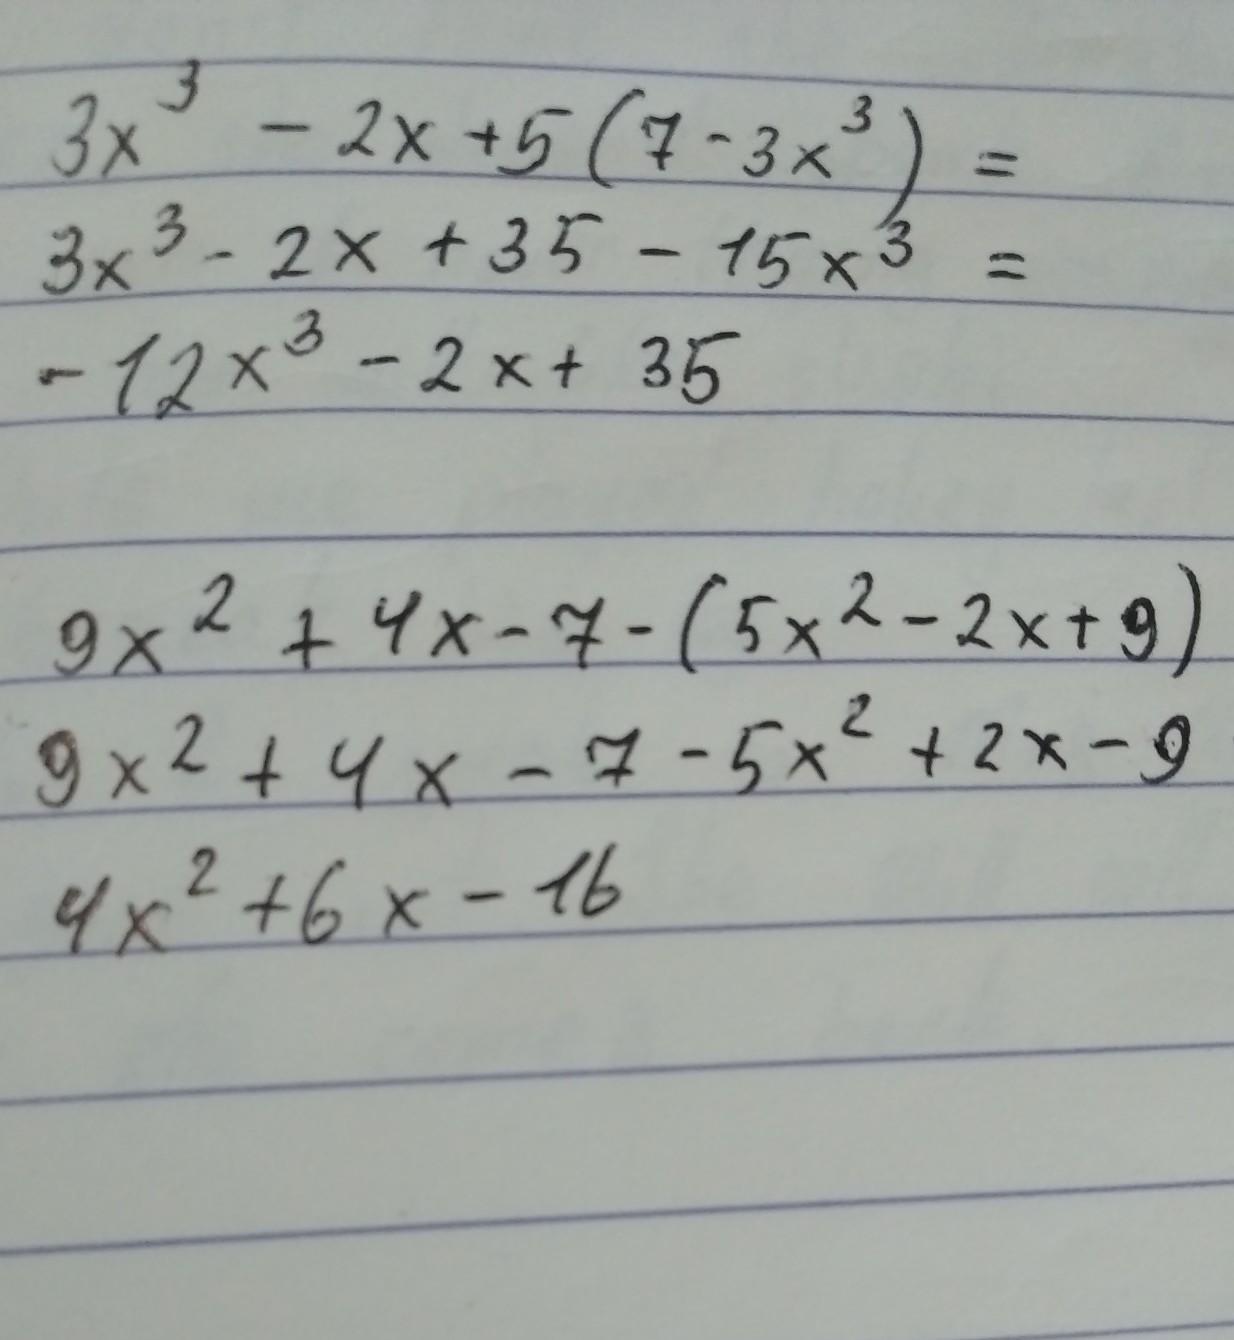 3x³ - 2x + 5 (7 - 3x³) =
3x³ - 2x + 35 - 15x³ =
-12x³ - 2x + 35
9x² + 4x - 7 - (5x² - 2x + 9)
9x² + 4x - 7 - 5x² + 2x - 9
4x² + 6x - 16